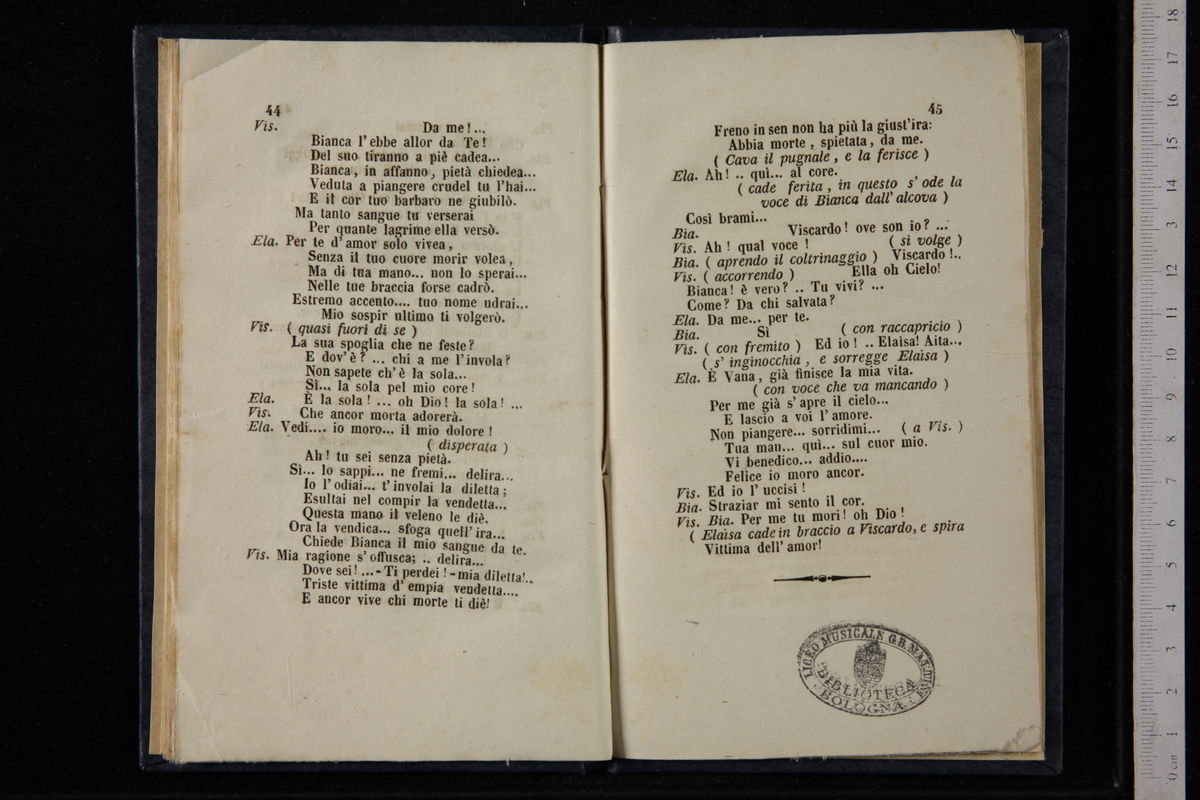 44
Vis. Da me!...
Bianca l'ebbe allor da Te!
Del suo tiranno a piè cadea...
Bianca, in affanno, pietà chiedea...
Veduta a piangere crudel tu l'hai...
E il cor tuo barbaro ne giubilò.
Ma tanto sangue tu verserai
Per quante lagrime ella versò.
Ela. Per te d'amor solo vivea,
Senza il tuo cuore morir volea,
Ma di tua mano... non lo sperai...
Nelle tue braccia forse cadrò.
Estremo accento.... tuo nome udrai...
Mio sospir ultimo ti volgerò.
Vis. ( quasi fuori di se )
La sua spoglia che ne feste?
E dov'è? ... chi a me l'invola?
Non sapete ch'è la sola...
Sì... la sola pel mio core!
Ela. È la sola! ... oh Dio! la sola! ...
Vis. Che ancor morta adorerà.
Ela. Vedi.... io moro... il mio dolore!
( disperata )
Ah! tu sei senza pietà.
Sì... lo sappi... ne fremi... delira...
Io l'odiai... t'involai la diletta;
Esultai nel compir la vendetta...
Questa mano il veleno le diè.
Ora la vendica... sfoga quell'ira...
Chiede Bianca il mio sangue da te.
Vis. Mia ragione s'offusca; .. delira...
Dove sei! ...-Ti perdei!-mia diletta!..
Triste vittima d'empia vendetta....
E ancor vive chi morte ti diè!
45
Freno in sen non ha più la giust'ira:
Abbia morte, spietata, da me.
( Cava il pugnale, e la ferisce )
Ela. Ah! .. quì... al core.
( cade ferita, in questo s'ode la
voce di Bianca dall'alcova )
Così brami...
Bia. Viscardo! ove son io? ...
Vis. Ah! qual voce! ( si volge )
Bia. ( aprendo il coltrinaggio ) Viscardo!..
Vis. ( accorrendo ) Ella oh Cielo!
Bianca! è vero? .. Tu vivi? ...
Come? Da chi salvata?
Ela. Da me... per te.
Bia. Sì ( con raccapricio )
Vis. ( con fremito ) Ed io! .. Elaisa! Aita...
( s'inginocchia, e sorregge Elaisa )
Ela. È Vana, già finisce la mia vita.
( con voce che va mancando )
Per me già s'apre il cielo...
E lascio a voi l'amore.
Non piangere... sorridimi... ( a Vis. )
Tua man... quì... sul cuor mio.
Vi benedico... addio....
Felice io moro ancor.
Vis. Ed io l'uccisi!
Bia. Straziar mi sento il cor.
Vis. Bia. Per me tu mori! oh Dio!
( Elaisa cade in braccio a Viscardo, e spira
Vittima dell'amor!
LICEO MUSICALE G.B. MARTINI
BIBLIOTECA
BOLOGNA
0 cm 1 2 3 4 5 6 7 8 9 10 11 12 13 14 15 16 17 18